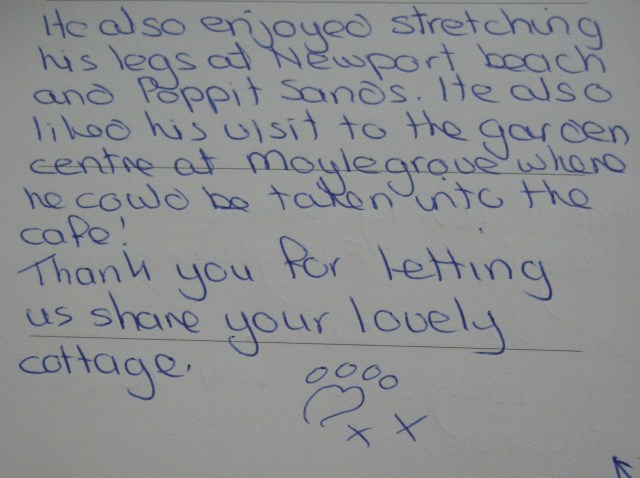 He also enjoyed stretching
his legs at Newport beach
and Poppit Sands. He also
liked his visit to the garden
centre at Moylegrove where
he could be taken into the
cafe!
Thank you for letting
us share your lovely
cottage.
x x